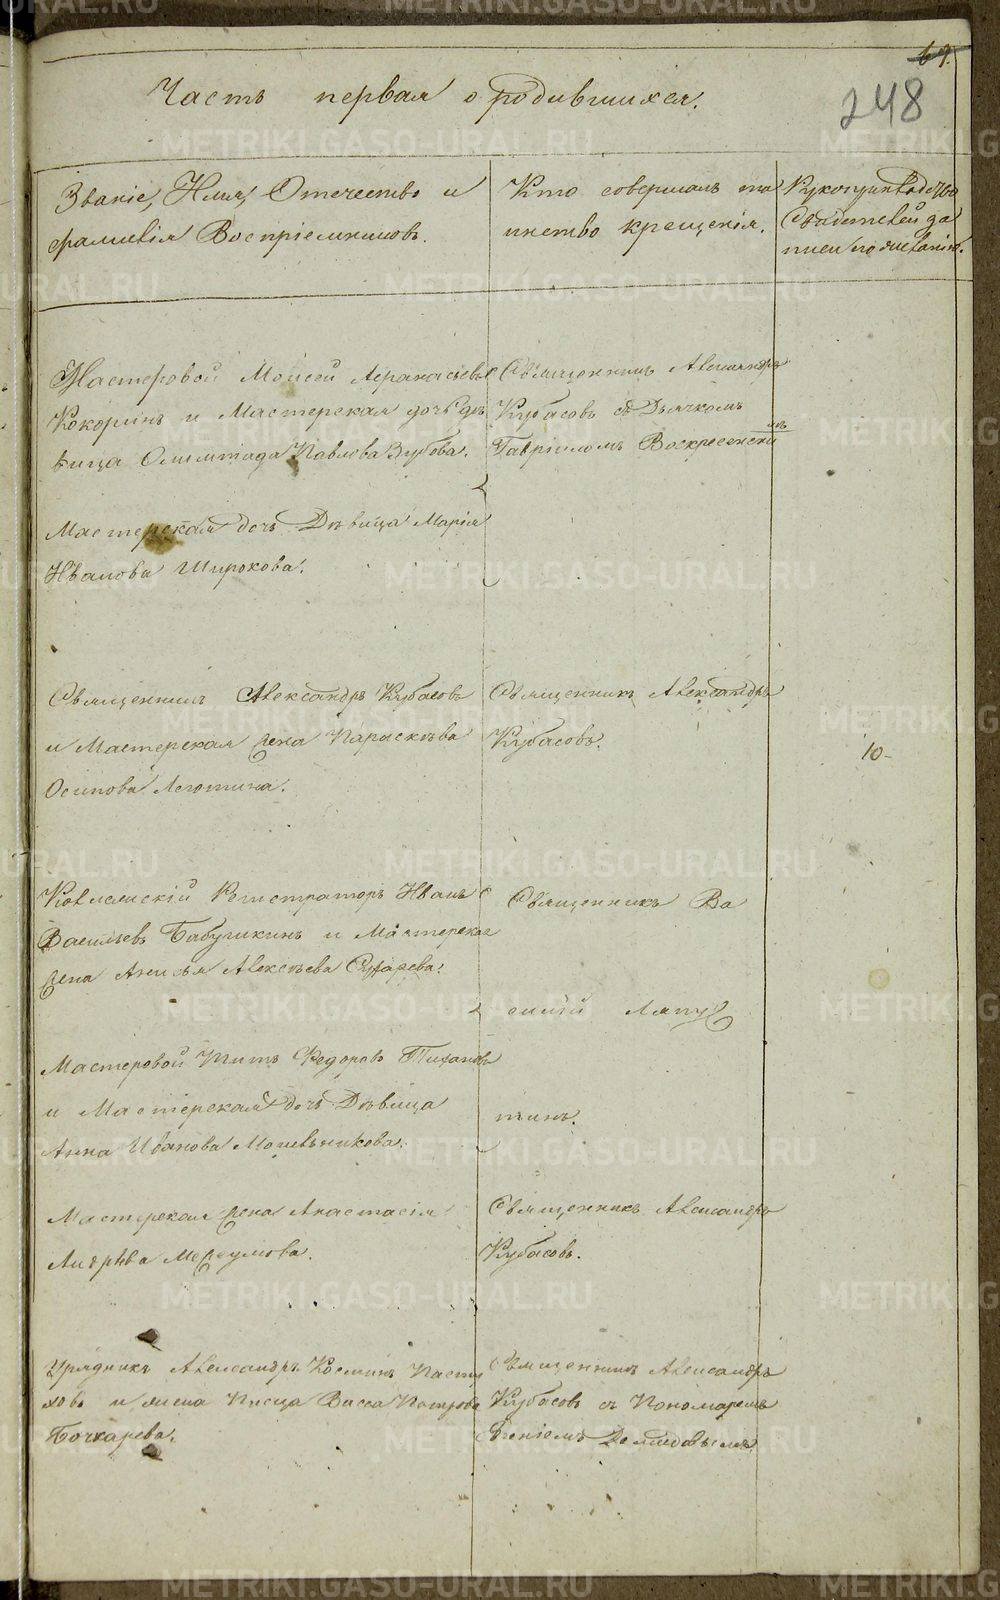 67.
248
Часть первая о родившихся.
Званіе, Имя, Отечество и
фамилія Воспріемниковъ.
Кто совершалъ та
инство крещенія.
Рукоприкладство
Свидѣтелей за
писи по желанію.
Мастеровой Моисей Афанасьевъ
Кокоринъ и Мастерская дочь дѣ
вица Олимпіада Павлова Зубова.
Священникъ Александръ
Кубасовъ съ Дьячкомъ
Гавріиломъ Воскресенски
мъ
Мастерская дочь Дѣвица Марія
Иванова Широкова.
Священникъ Александръ Кубасовъ
и Мастерская жена Параскева
Осипова Леготина.
Священникъ Александръ
Кубасовъ.
10-
Коллежскій Регистраторъ Иванъ
Васильевъ Бабушкинъ и Мастерская
жена Анисья Алексѣева
Священникъ Ва
силій Ляпу
стинъ.
Мастеровой Титъ Федоровъ
и Мастерская дочь Дѣвица
Анна Иванова
Мастерская жена Анастасія
Андрѣева
Священникъ Александръ
Кубасовъ.
Урядникъ Александръ Косминъ Пасту
ховъ и жена Писца Васса Петрова
Бочкарева.
Священникъ Александръ
Кубасовъ съ Пономаремъ
METRIKI.GASO-URAL.RU